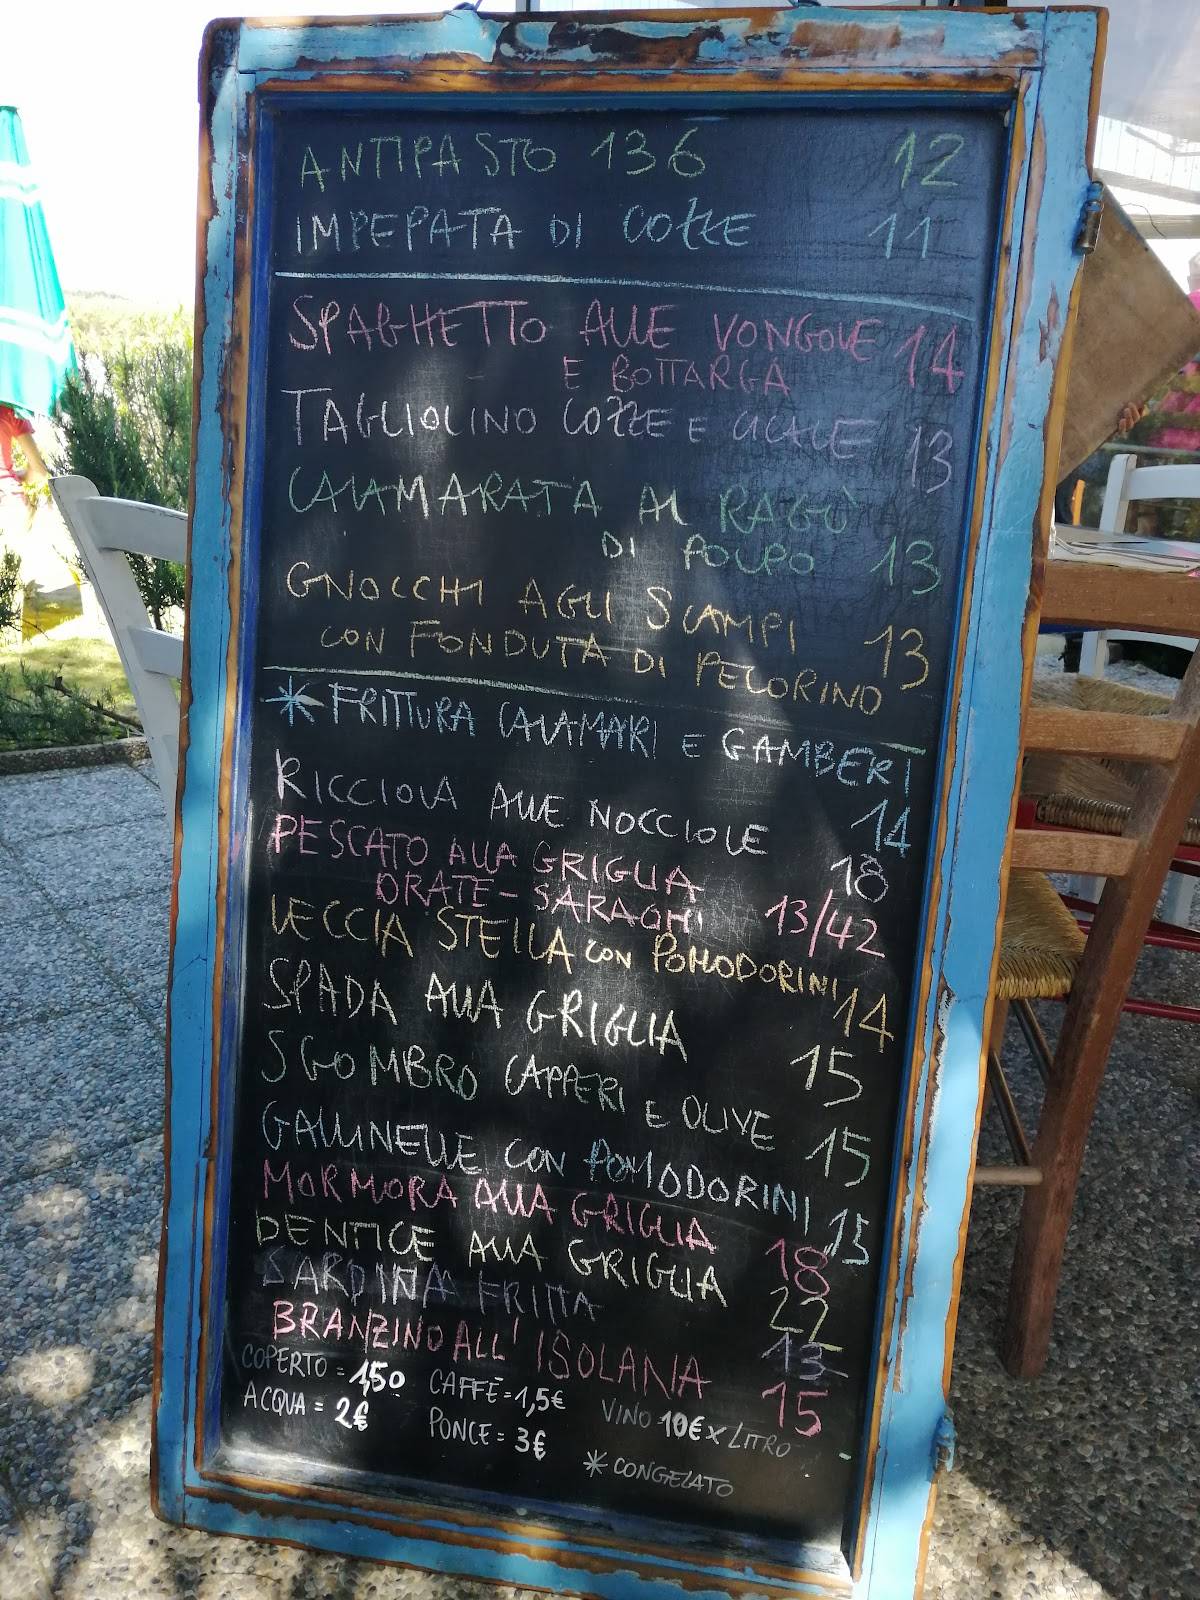 ANTIPASTO 136 12
IMPEPATA DI COZZE 11
SPAGHETTO ALLE VONGOLE 14
E BOTTARGA
TAGLIOLINO COZZE E CICALE 13
CALAMARATA AL RAGÙ
DI POLPO 13
GNOCCHI AGLI SCAMPI 13
CON FONDUTA DI PECORINO
* FRITTURA CALAMARI E GAMBERI
14
RICCIOLA ALLE NOCCIOLE 18
PESCATO ALLA GRIGLIA
ORATE - SARAGHI 13/42
LECCIA STELLA CON POMODORINI 14
SPADA ALLA GRIGLIA 15
SGOMBRO CAPPERI E OLIVE 15
GALLINELLE CON POMODORINI 15
MORMORA ALLA GRIGLIA 18
DENTICE ALLA GRIGLIA 22
SARDINA FRITTA 13
BRANZINO ALL' ISOLANA 15
COPERTO = 1,50 CAFFÈ = 1,5€ VINO 10€ x LITRO
ACQUA = 2€ PONCE = 3€
* CONGELATO